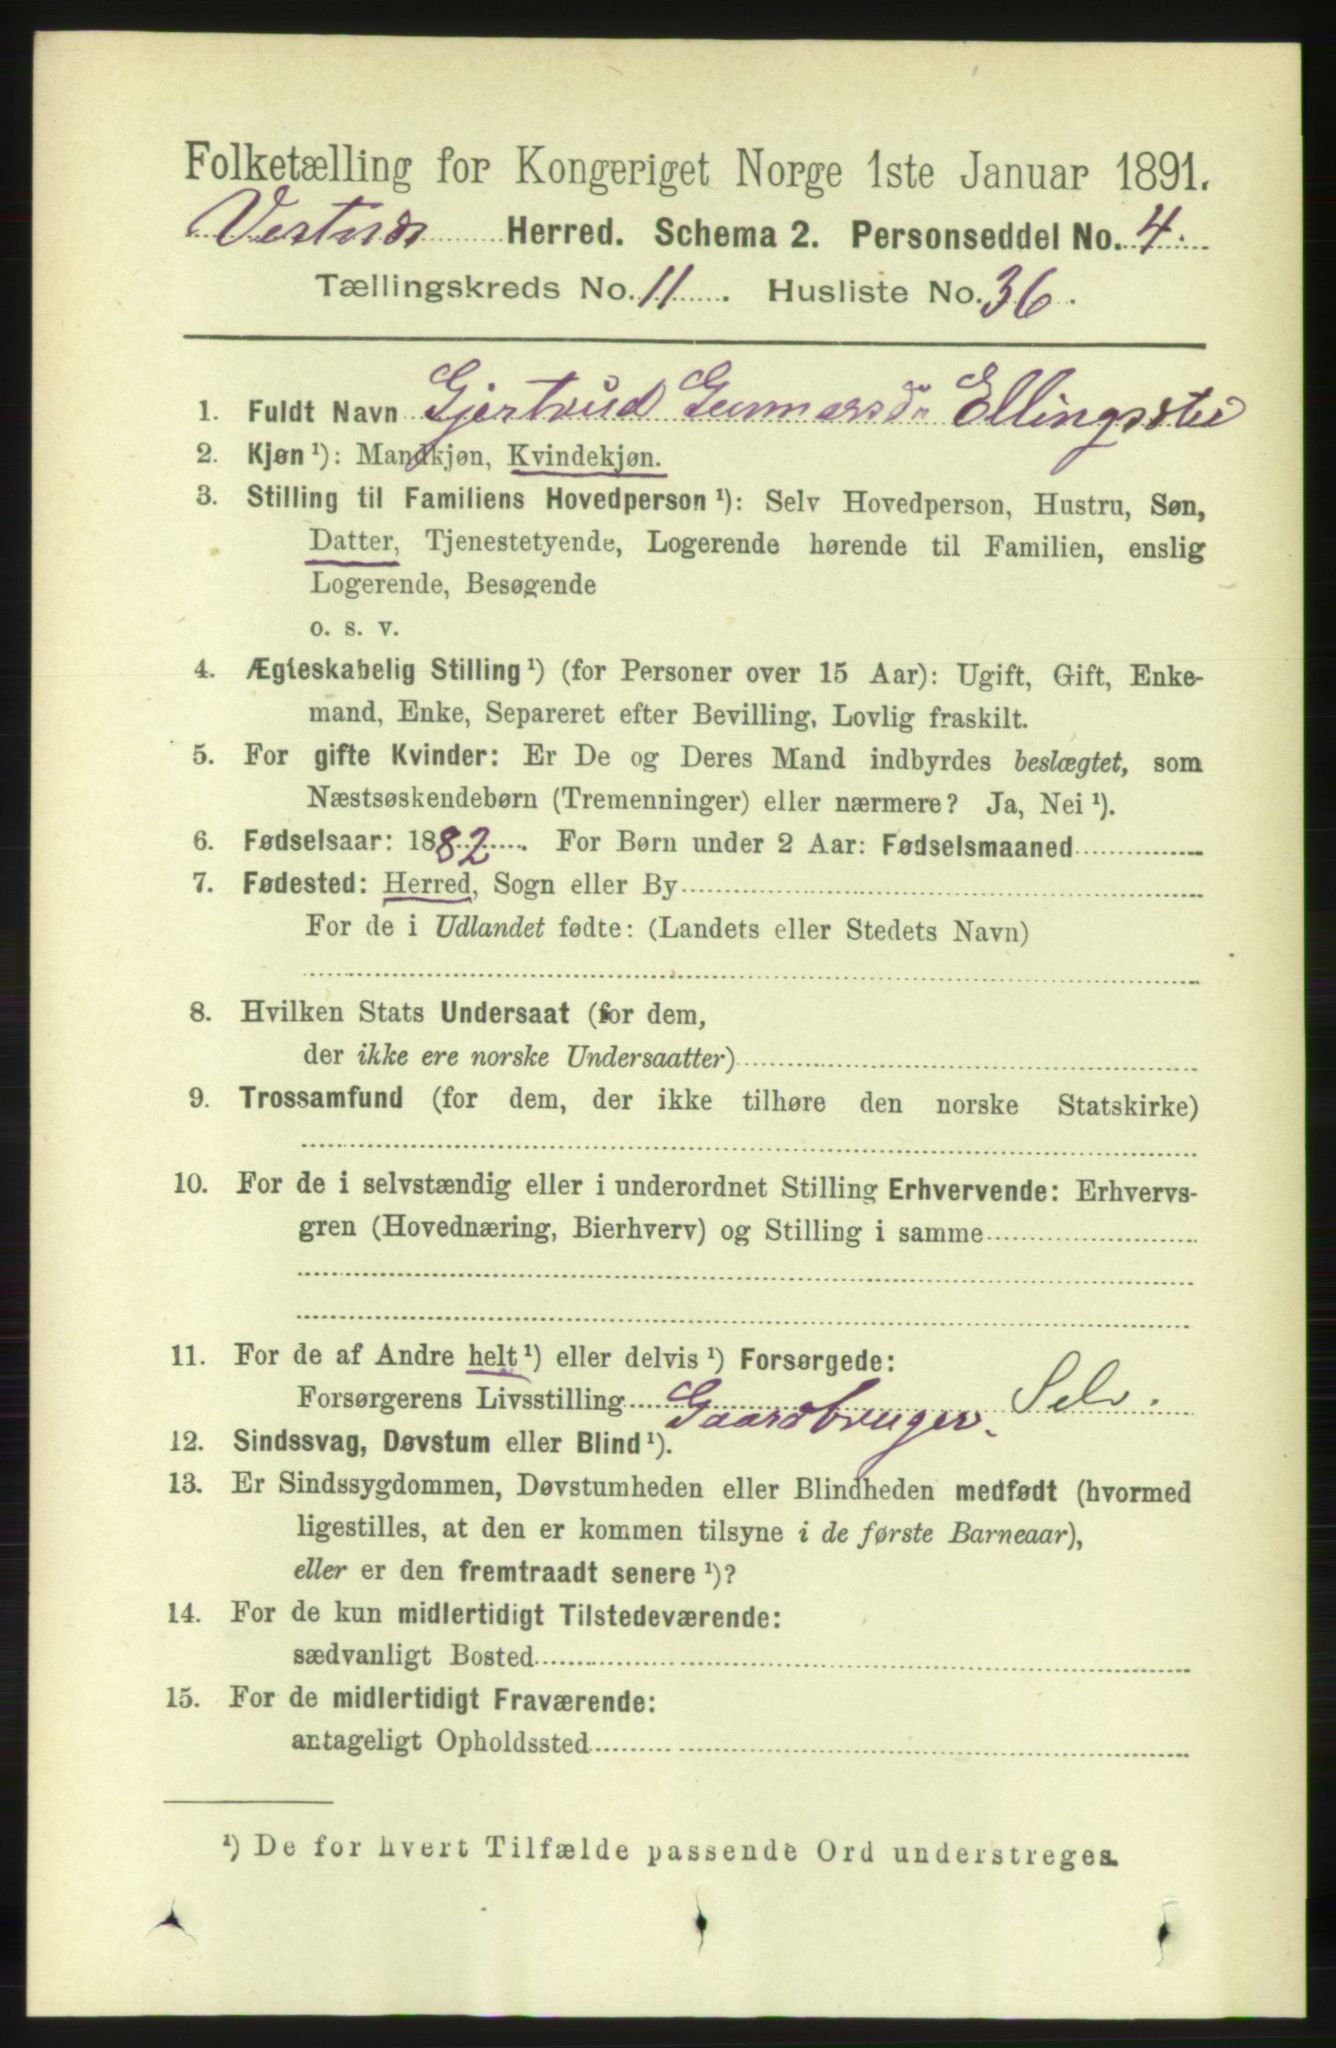 Folketælling for Kongeriget Norge 1ste Januar 1891.
Vestnes Herred. Schema 2. Personseddel No. 4.
Tællingskreds No. 11. Husliste No. 36.
1. Fuldt Navn Gjertrud Gunnarsdr Ellingsstei
2. Kjøn ¹): Mandkjøn, Kvindekjøn.
3. Stilling til Familiens Hovedperson ¹): Selv Hovedperson, Hustru, Søn,
Datter, Tjenestetyende, Logerende hørende til Familien, enslig
Logerende, Besøgende
o. s. v.
4. Ægteskabelig Stilling ¹) (for Personer over 15 Aar): Ugift, Gift, Enke-
mand, Enke, Separeret efter Bevilling, Lovlig fraskilt.
5. For gifte Kvinder: Er De og Deres Mand indbyrdes beslægtet, som
Næstsøskendebørn (Tremenninger) eller nærmere? Ja, Nei ¹).
6. Fødselsaar: 1882. For Børn under 2 Aar: Fødselsmaaned
7. Fødested: Herred, Sogn eller By
For de i Udlandet fødte: (Landets eller Stedets Navn)
8. Hvilken Stats Undersaat (for dem,
der ikke ere norske Undersaatter)
9. Trossamfund (for dem, der ikke tilhøre den norske Statskirke)
10. For de i selvstændig eller i underordnet Stilling Erhvervende: Erhvervs-
gren (Hovednæring, Bierhverv) og Stilling i samme
11. For de af Andre helt ¹) eller delvis ¹) Forsørgede:
Forsørgerens Livsstilling Gaardbruger. Selv.
12. Sindssvag, Døvstum eller Blind ¹).
13. Er Sindssygdommen, Døvstumheden eller Blindheden medfødt (hvormed
ligestilles, at den er kommen tilsyne i de første Barneaar),
eller er den fremtraadt senere ¹)?
14. For de kun midlertidigt Tilstedeværende:
sædvanligt Bosted
15. For de midlertidigt Fraværende:
antageligt Opholdssted
¹) De for hvert Tilfælde passende Ord understreges.